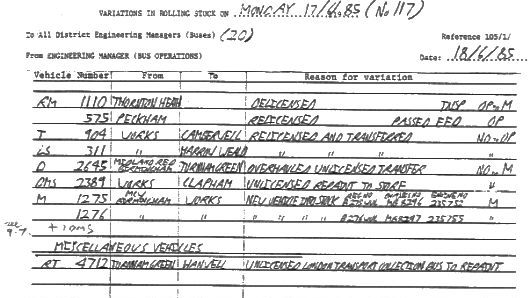 VARIATIONS IN ROLLING STOCK ON MONDAY 17/6/85 (No 117)
To All District Engineering Managers (Buses) (20) Reference 105/1/
From ENGINEERING MANAGER (BUS OPERATIONS) Date: 18/6/85
Vehicle Number From To Reason for variation
RM 1110 THORNTON HEATH DELICENSED INSP OP-M
575 PECKHAM RELICENSED PASSED FFD OP
T 904 WORKS CAMBERWELL RELICENSED AND TRANSFERRED NO-OP
LS 311 " HARROW WEALD " " " "
D 2645 MIDLAND RED BIRMINGHAM TURNHAM GREEN OVERHAULED UNLICENSED TRANSFER NO-M
DMS 2389 WORKS CLAPHAM UNLICENSED REPAINT TO STORE "
M 1275 MCW BIRMINGHAM WORKS NEW VEHICLE INTO STOCK 235752 M
1276 " " " " 235755 "
MISCELLANEOUS VEHICLES
RT 4712 TURNHAM GREEN HANWELL UNLICENSED LONDON TRANSPORT COLLECTION BUS TO REPAINT